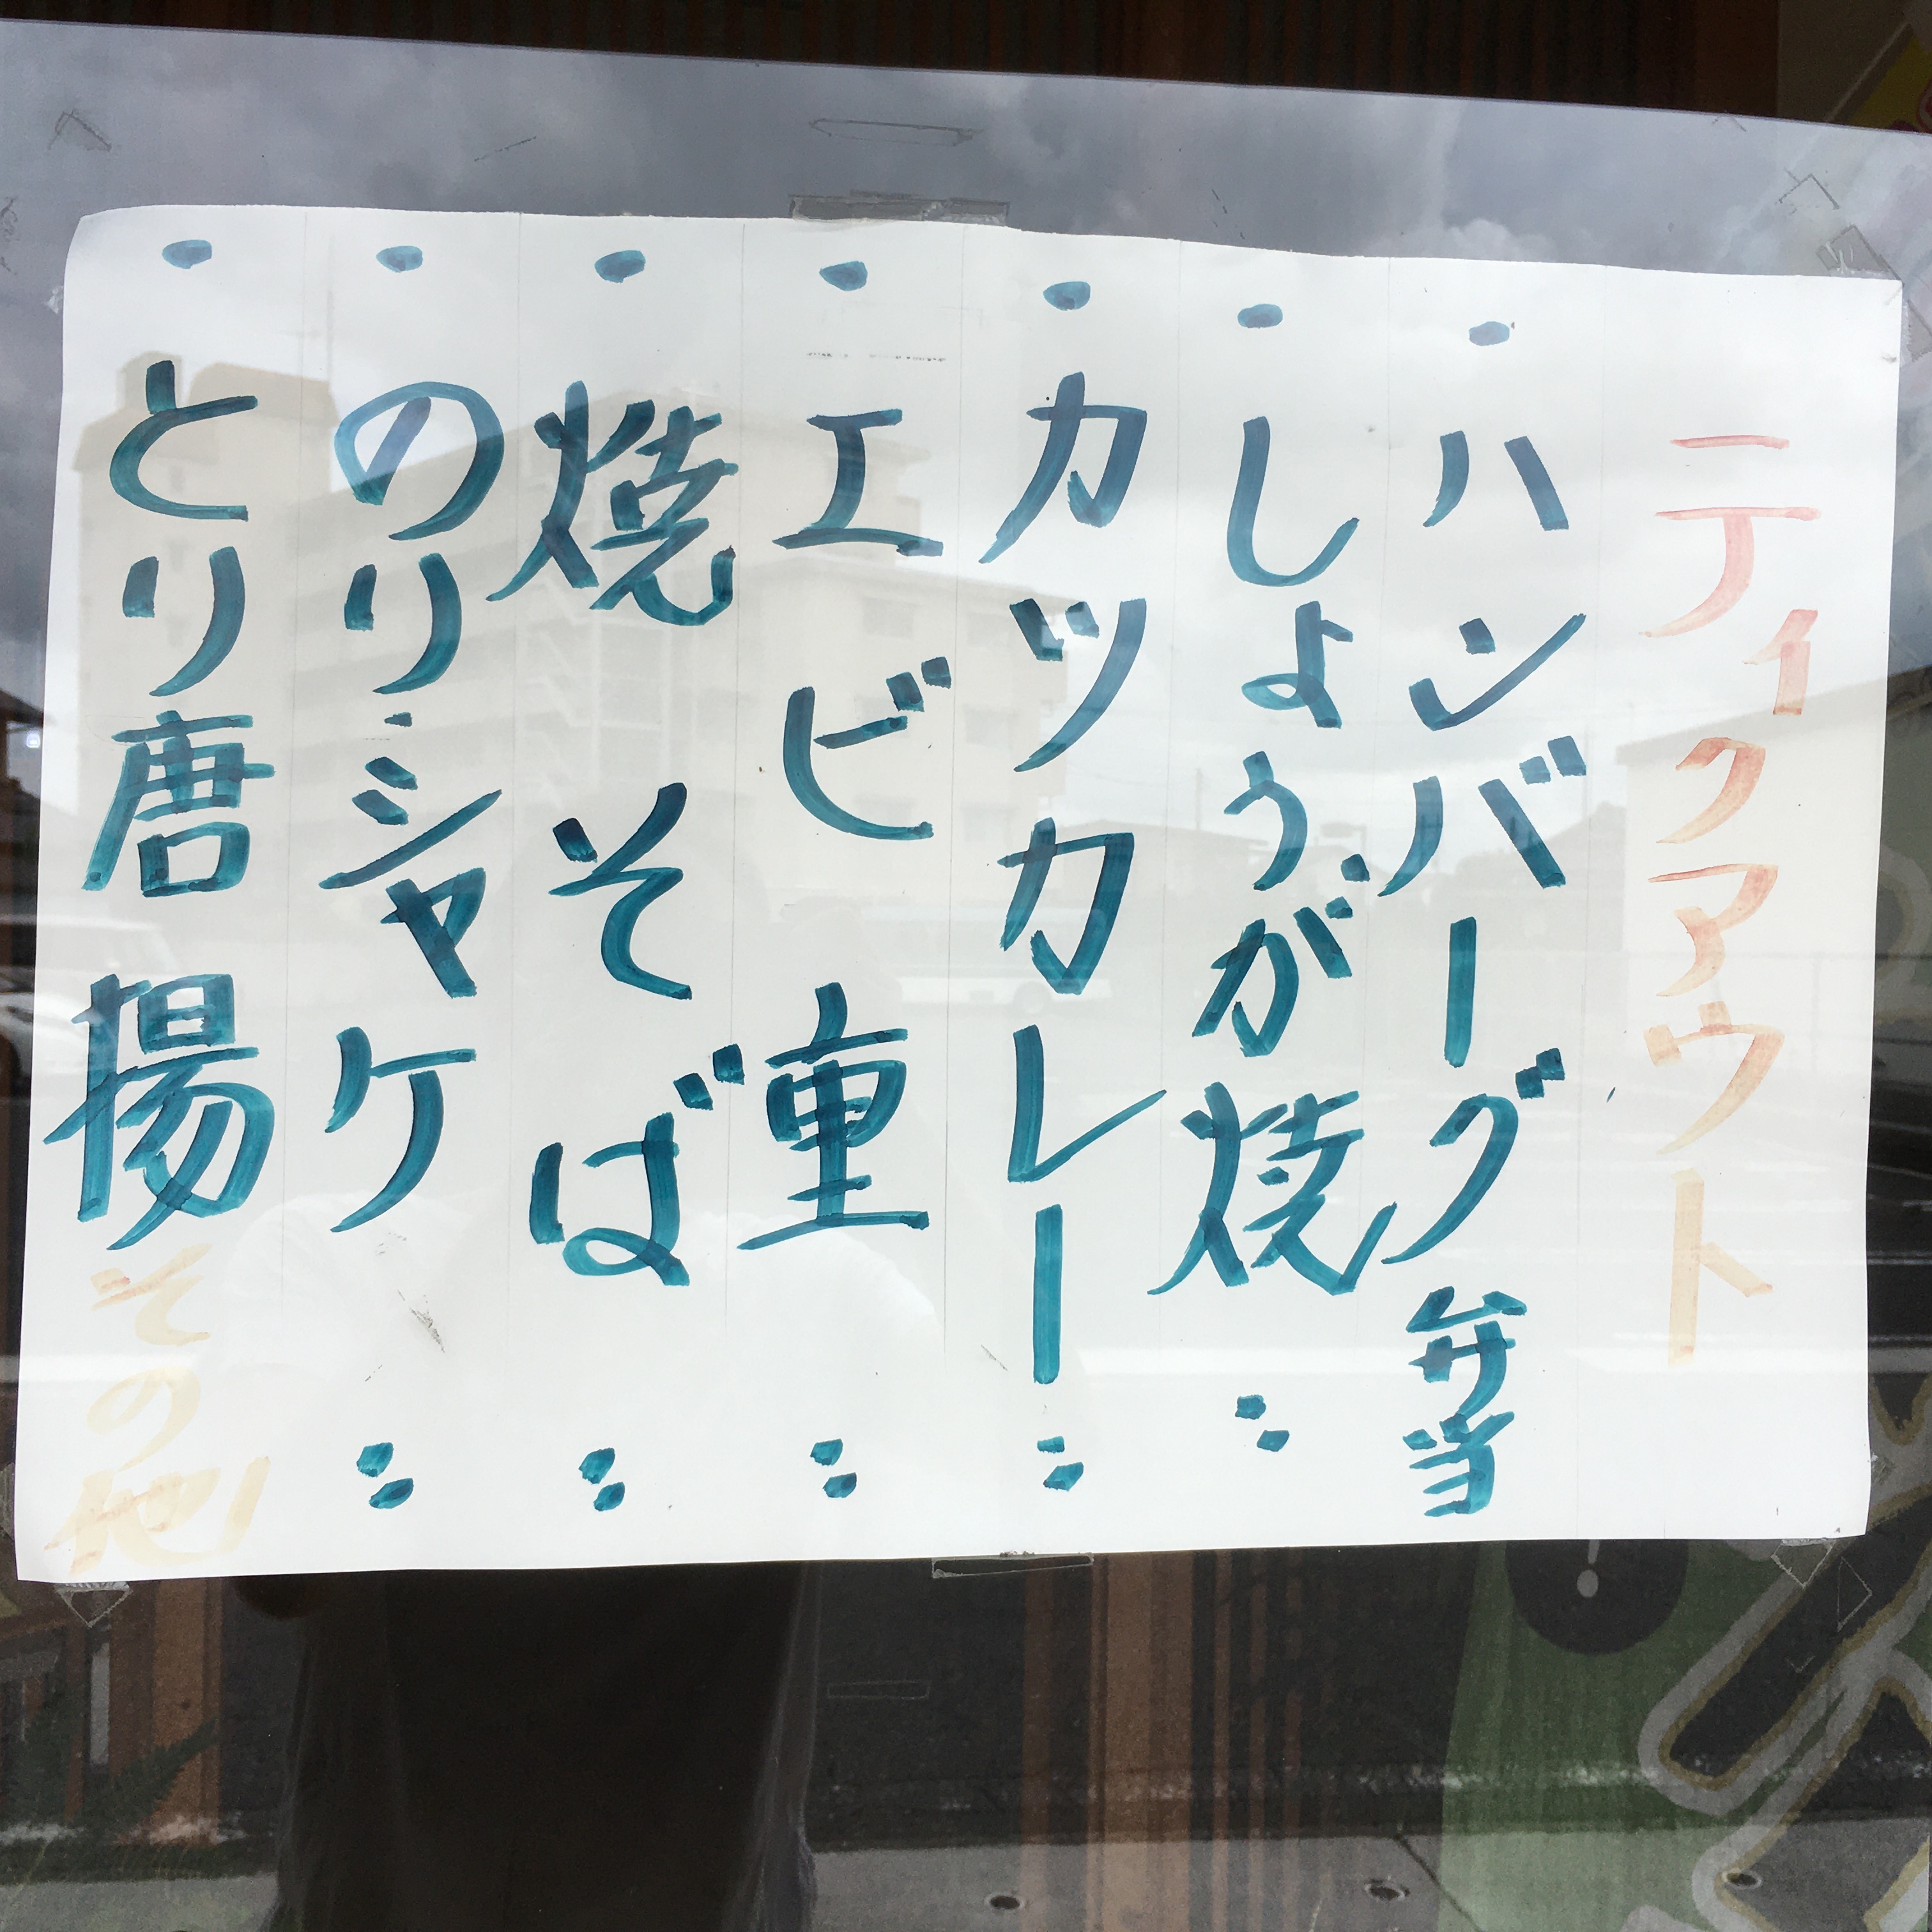 ティクアウト
・ハンバーグ弁当
・しょうが焼〃
・カツカレー〃
・エビ重〃
・焼そば〃
・のりシャケ〃
・とり唐揚その他